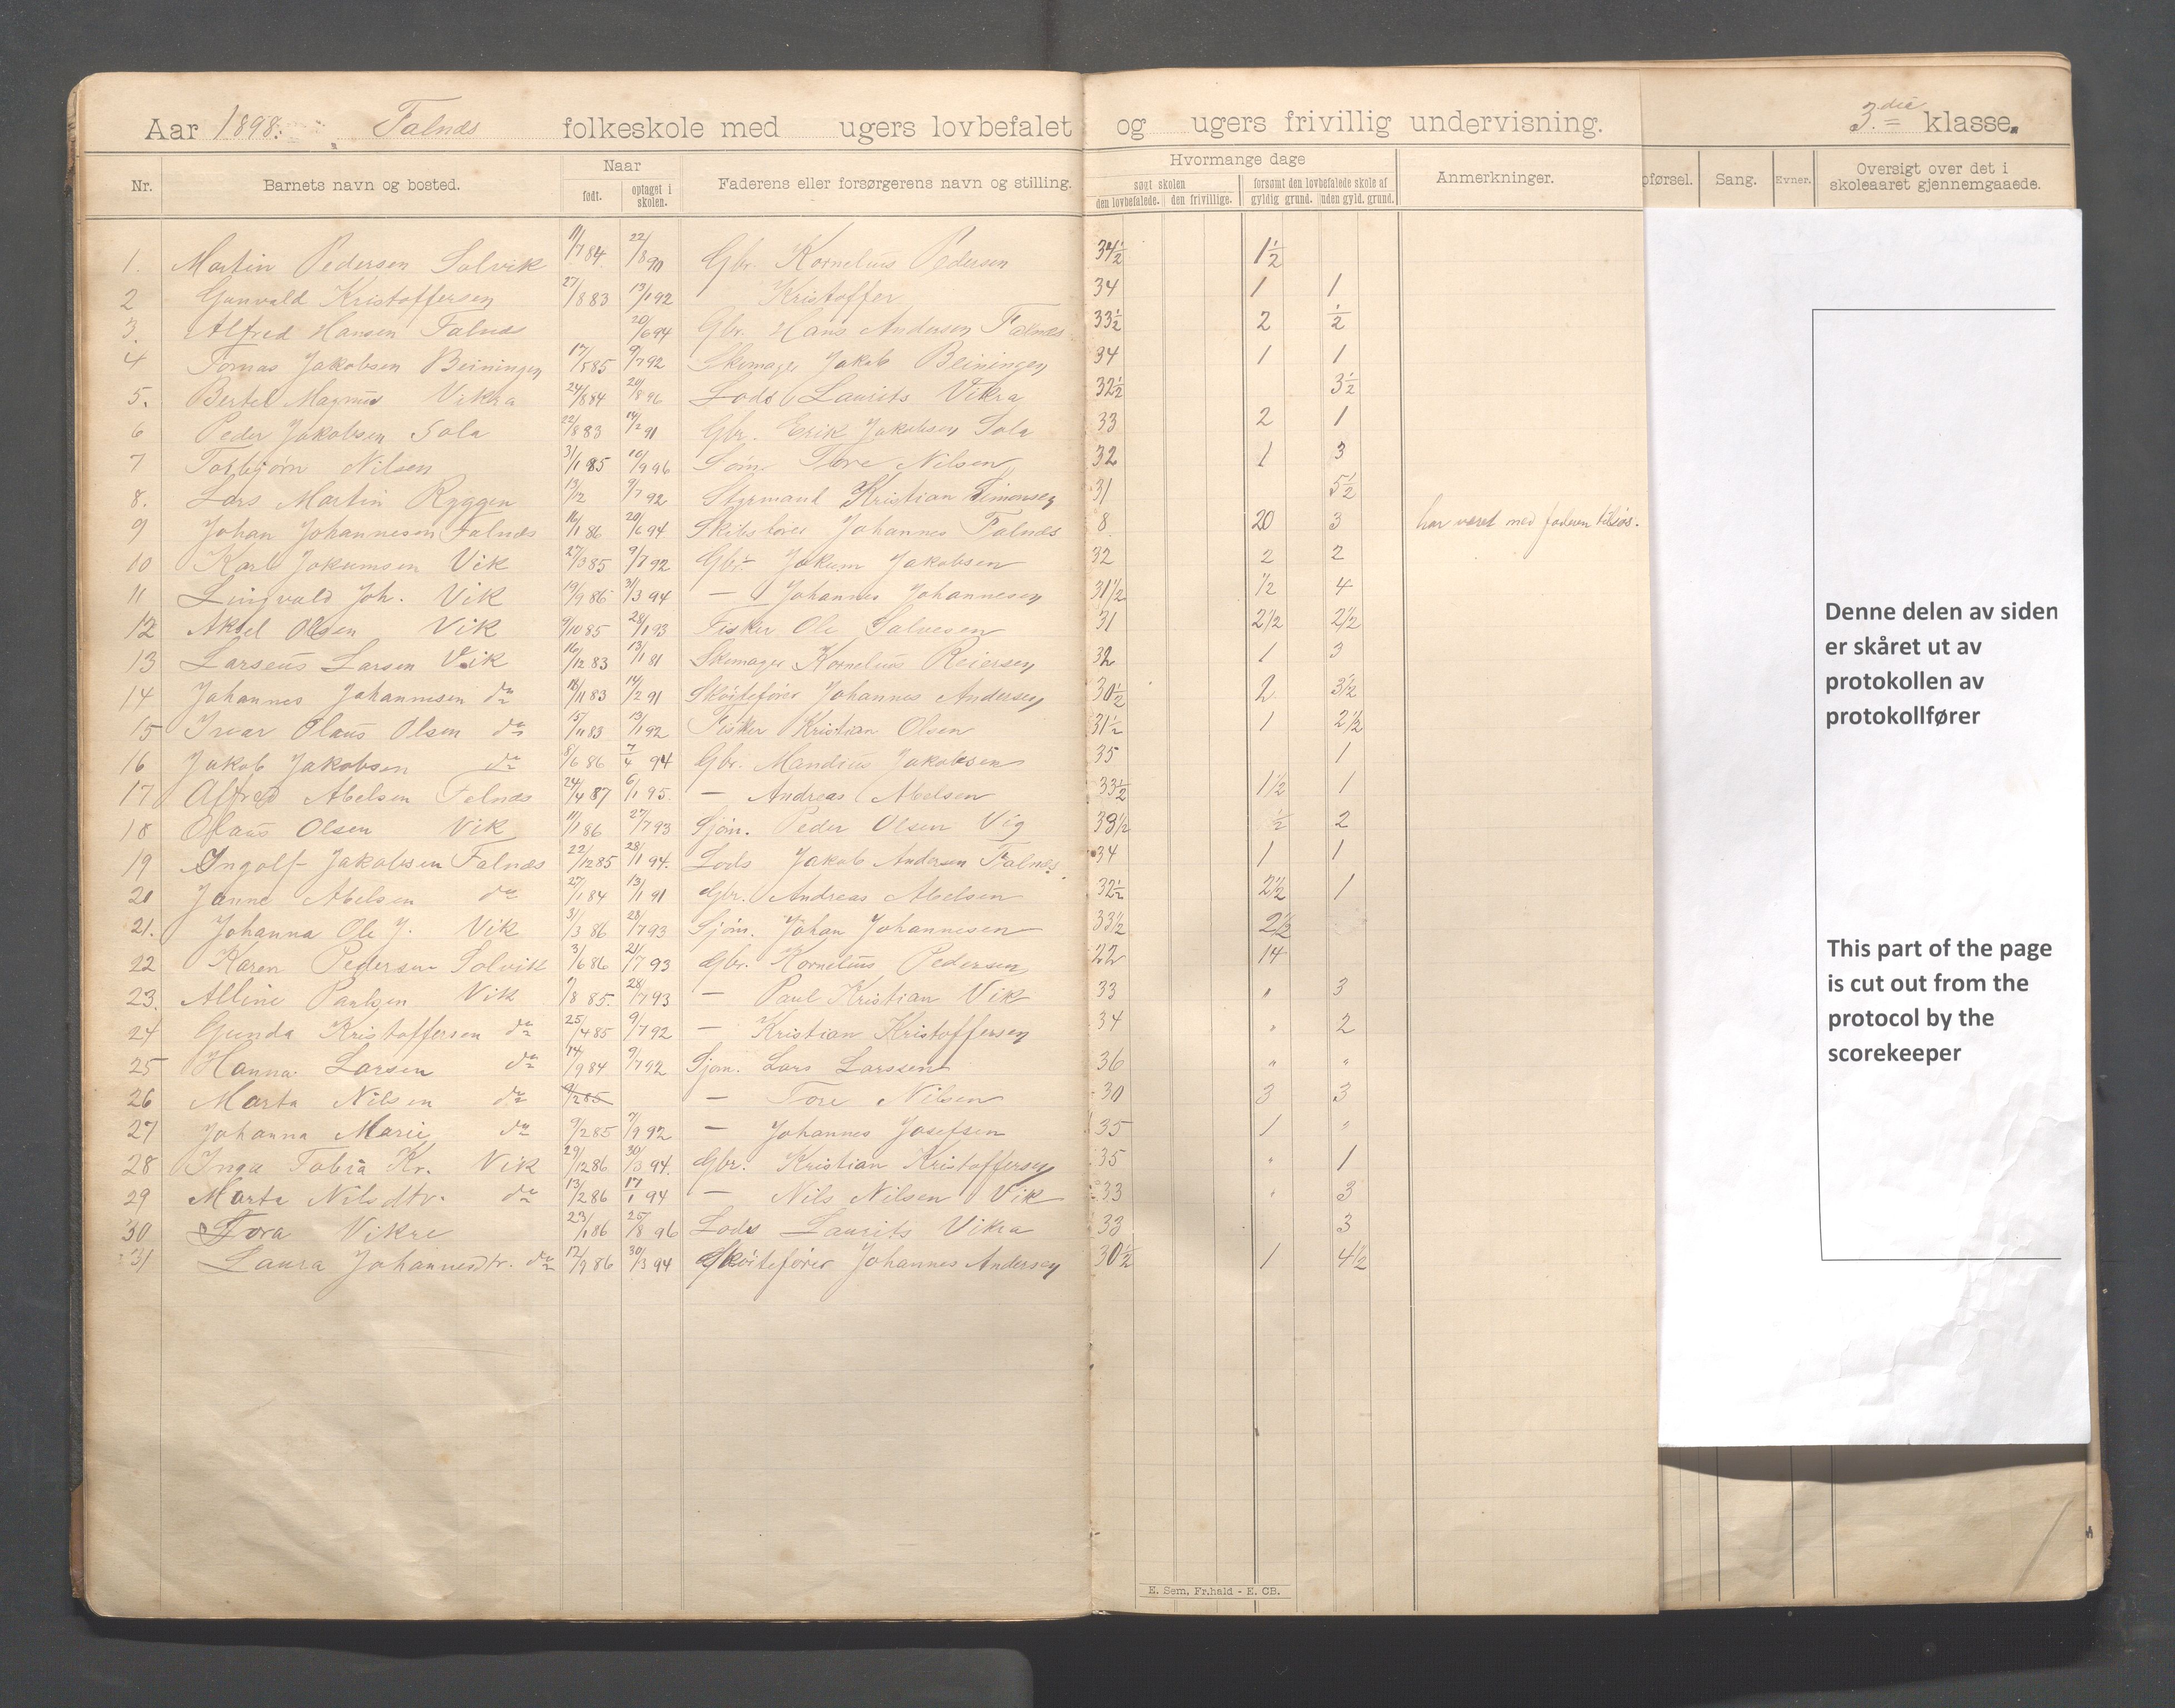 Aar 1898. Falnæs folkeskole med ugers lovbefalet og ugers frivillig undervisning. 3.die klasse.
Nr. Barnets navn og bosted. Naar født. optaget i skolen. Faderens eller forsørgerens navn og stilling. Hvormange dage søgt skolen den lovbefalede. den frivillige. forsømt den lovbefalede skole af gyldig grund. uden gyld. grund. Anmerkninger. pførsel. Sang. Evner. Oversigt over det i skoleaaret gjennemgaaede.
1. Martin Pedersen Solvik 11/7 84. 22/8 90 Gbr. Kornelius Pedersen 34½ 1½
2 Gunvald Kristoffersen 27/8 83 13/1 92 Kristoffer 34 1 1
3. Alfred Hansen Falnæs 20/6 94 Gbr. Hans Andersen Falnæs 33½ 2 ½
4 Tomas Jakobsen Beiningen 17/5 85 9/7 92 Skomager Jakob Beiningen 34 1 1
5. Bertel Magnus Vikra 24/8 84 20/8 96 Lods Laurits Vikra 32½ 3½
6 Peder Jakobsen Sola 22/8 83 14/2 91 Gbr. Erik Jakobsen Sola 33 2 1
7 Torbjørn Nilsen 31/1 85 10/9 96 Sjøm. Tore Nilsen 32 1 3
8. Lars Martin Ryggen 13/12 9/7 92 Styrmand Kristian Simonsen 31 5½
9 Johan Johannesen Falnæs 16/1 86 20/6 94 Skibsfører Johannes Falnæs 8 20 3 har været med faderen tilsjøs.
10 Karl Jokumsen Vik 27/3 85 9/7 92 Gbr. Jokum Jakobsen 32 2 2
11 Lingvald Joh. Vik 19/9 86 31/3 94 — Johannes Johannesen 31½ ½ 4
12 Aksel Olsen Vik 9/10 85 28/1 93 Fisker Ole Salvesen 31 2½ 2½
13 Larseus Larsen Vik 16/12 83 13/1 81 Skomager Kornelius Reiersen 32 1 3
14 Johannes Johannesen do 18/11 83 14/2 91 Skøitefører Johannes Andersen 30½ 2 3½
15 Ivar Olaus Olsen do 15/11 83 13/1 92 Fisker Kristian Olsen 31½ 1 2½
16 Jakob Jakobsen do 8/6 86 7/4 94 Gbr. Mandius Jakobsen 35 1
17 Alfred Abelsen Felnæs 24/4 87 6/1 95. — Andreas Abelsen 33½ 1½ 1
18 Olaus Olsen Vik 11/1 86 27/7 93 Sjøm. Peder Olsen Vig 33½ ½ 2
19 Ingolf Jakobsen Falnæs 22/12 85 28/11 94. Lods Jakob Andersen Falnæs. 34 1 1
20 Janne Abelsen do 27/1 84 13/1 91 Gbr. Andreas Abelsen 32½ 2½ 1
21. Johanna Ole J. Vik 31/3 86 28/7 93 Sjøm. Johan Johannesen 33½ 2½
22 Karen Pedersen Solvik 3/6 86 21/7 93 Gbr. Kornelius Pedersen 22 14
23. Alline Paulsen Vik 7/8 85. 28/7 93 — Paul Kristian Vik 33 " 3
24 Gunda Kristoffersen do 25/4 85 9/7 92 — Kristian Kristoffersen 34 " 2
25 Hanna Larsen do 14/9 84 9/7 92 Sjøm. Lars Larssen 36 " "
26 Marta Nilsen do 9/2 85 — Tore Nilsen 30 3 3
27 Johanna Marie do 9/2 85 7/9 92 — Johannes Josefsen 35 1 "
28 Inga Tobia Kr. Vik 29/12 86 30/3 94. Gbr. Kristian Kristoffersen 35 " 1
29 Marta Nilsdtr. do 13/2 86 17/1 94 — Nils Nilsen Vik 33 " 3
30 Tora Vikre 23/1 86 25/8 96 Lods Laurits Vikra 33 3
31 Laura Johannesdtr. do 12/9 86 30/3 94 Skøitefører Johannes Andersen 30½ 1 4½
E. Sem. Fr.hald - E. CB.
Denne delen av siden
er skåret ut av
protokollen av
protokollfører
This part of the page
is cut out from the
protocol by the
scorekeeper